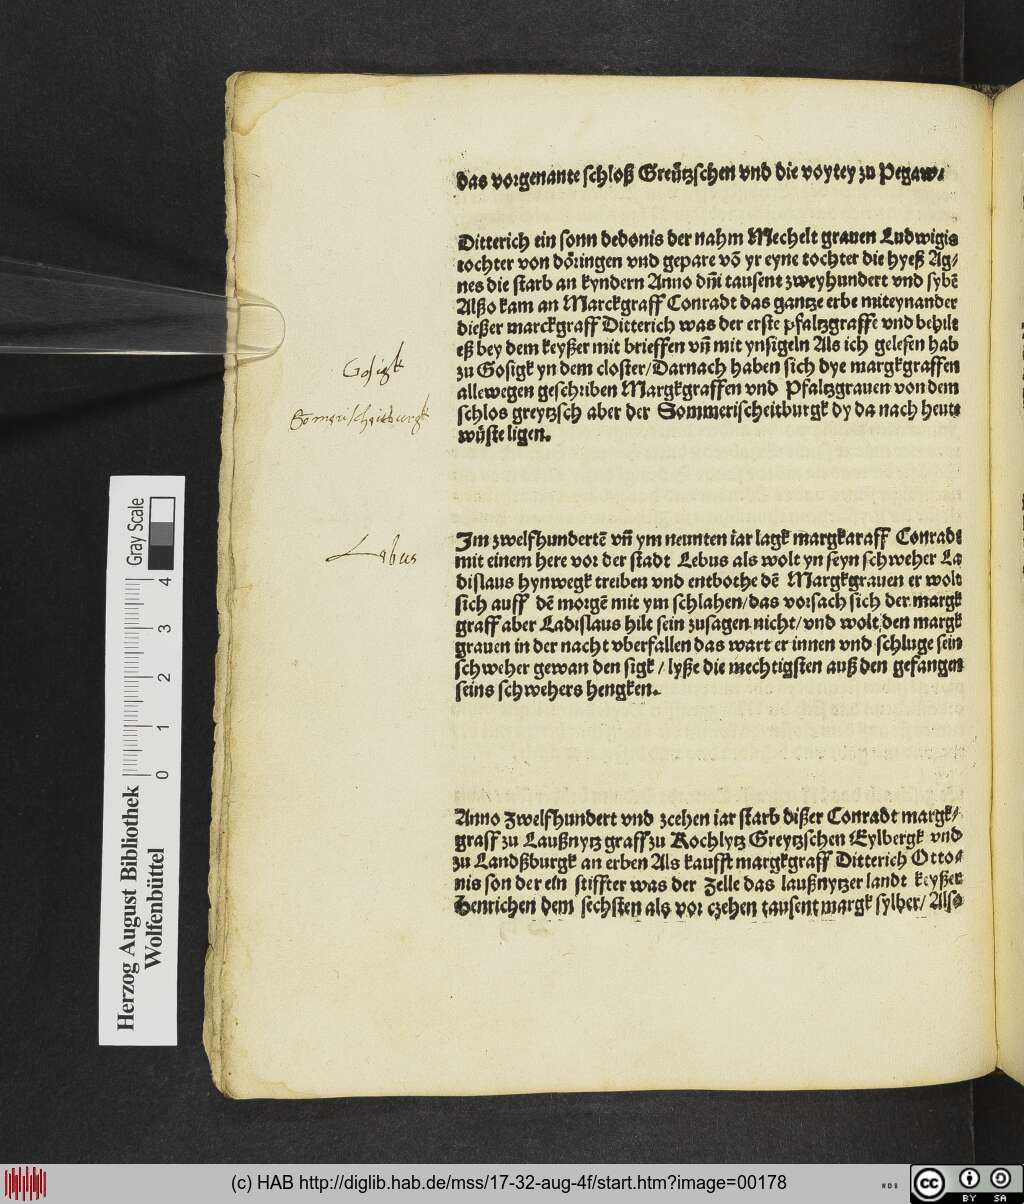 das vorgenante schloß Greützschen vnd die voytey zu Pegaw.
Ditterich ein sonn dedonis der nahm Mechelt grauen Ludwigis
tochter von döringen vnd gepare vō yr eyne tochter die hyeß Ag⸗
nes die starb an kyndern Anno dn̄i tausent zweyhundert vnd sybē
Alßo kam an Marckgraff Conradt das gantze erbe miteynander
dießer marckgraff Ditterich was der erste pfaltzgraffe vnd behilt
eß bey dem keyßer mit brieffen vn̄ mit ynsigeln Als ich gelesen hab
Gosigk
zu Gosigk yn dem closter/Darnach haben sich dye margkgraffen
allewegen geschriben Margkgraffen vnd Pfaltzgrauen von dem
Sōmerischeitburgk
schlos greytzsch aber der Sommerischeitburgk dy da nach heute
wüste ligen.
Im zwelfhundertē vn̄ ym neunten iar lagk margkaraff Conradt
Lebus
mit einem here vor der stadt Lebus als wolt yn seyn schweher La
dislaus hynwegk treiben vnd entbothe dē Margkgrauen er wolt
sich auff dē morgē mit ym schlahen/das vorsach sich der margk
graff aber Ladislaus hilt sein zusagen nicht/vnd wolt den margk
grauen in der nacht vberfallen das wart er innen vnd schluge sein
schweher gewan den sigk / lyße die mechtigsten auß den gefangen
seins schwehers hengken.
Anno zwelfhundert vnd zcehen iar starb dißer Conradt margk⸗
graff zu Laußnytz graff zu Rochlytz Greytzschen Eylbergk vnd
zu Landßburgk an erben Als kaufft margkgraff Ditterich Otto⸗
nis son der ein stiffter was der Zelle das laußnytzer landt keyßer
Henrichen dem sechsten als vor czehen tausent margk sylber/ Also
Herzog August Bibliothek
Wolfenbüttel
0 1 2 3 4
Gray Scale
(c) HAB http://diglib.hab.de/mss/17-32-aug-4f/start.htm?image=00178
WDB
cc BY SA